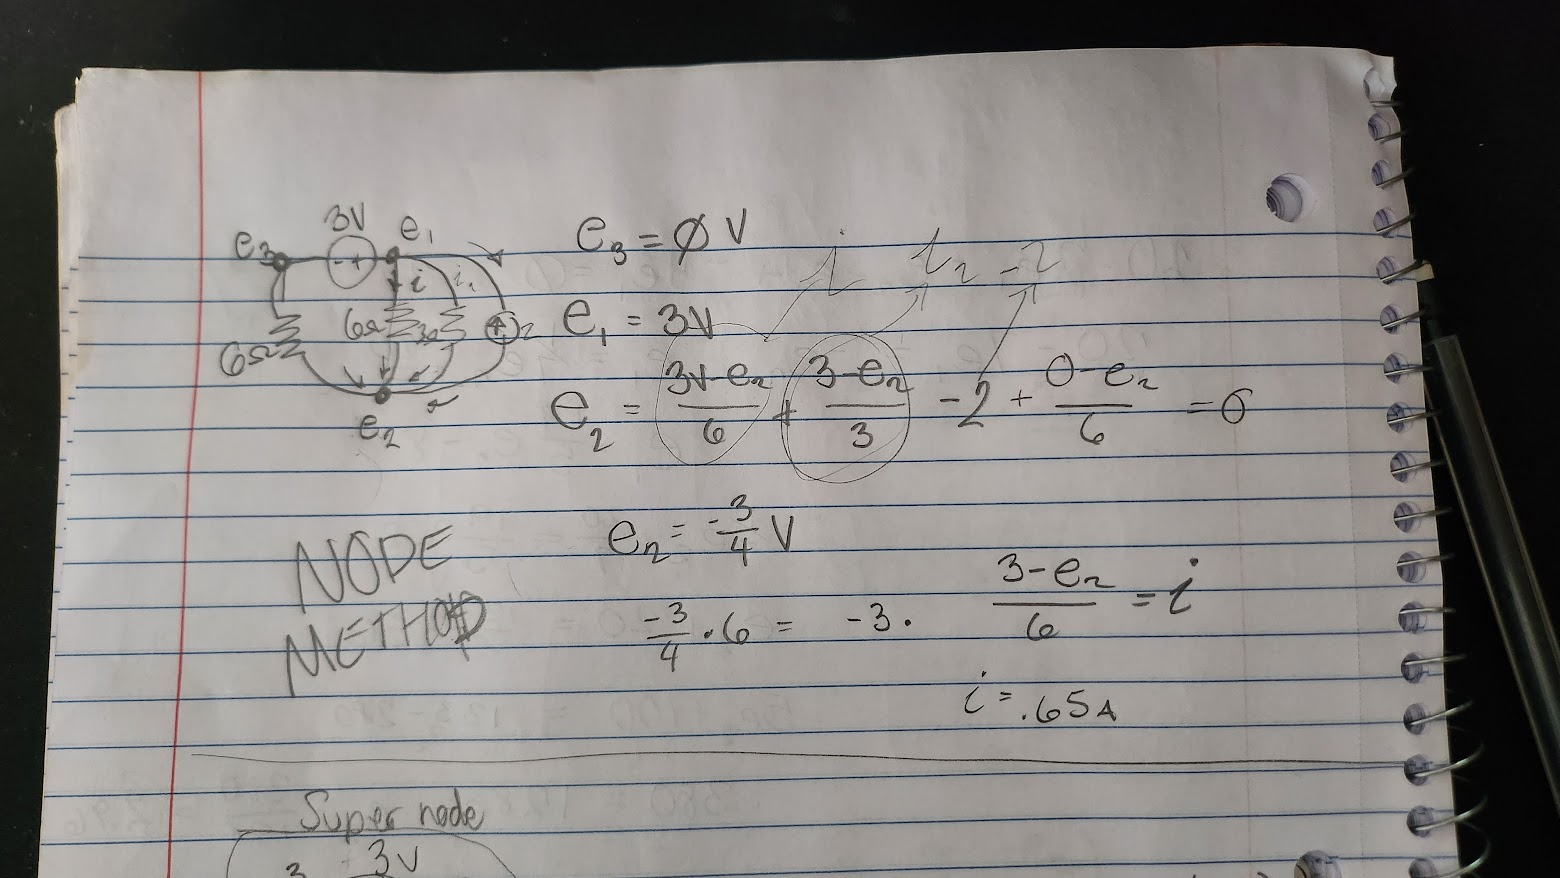 3V
e₃
e₁
- +
i
i₂
6Ω
6Ω
3Ω
2
e₂
e₃ = ∅ V
i i₂ -2
e₁ = 3V
e₂ = (3V-e₂)/6 + (3-e₂)/3 -2 + (0-e₂)/6 = 0
NODE
METHOD
e₂ = -3/4 V
-3/4 · 6 = -3.
(3-e₂)/6 = i
i = .65A
Super node
3V